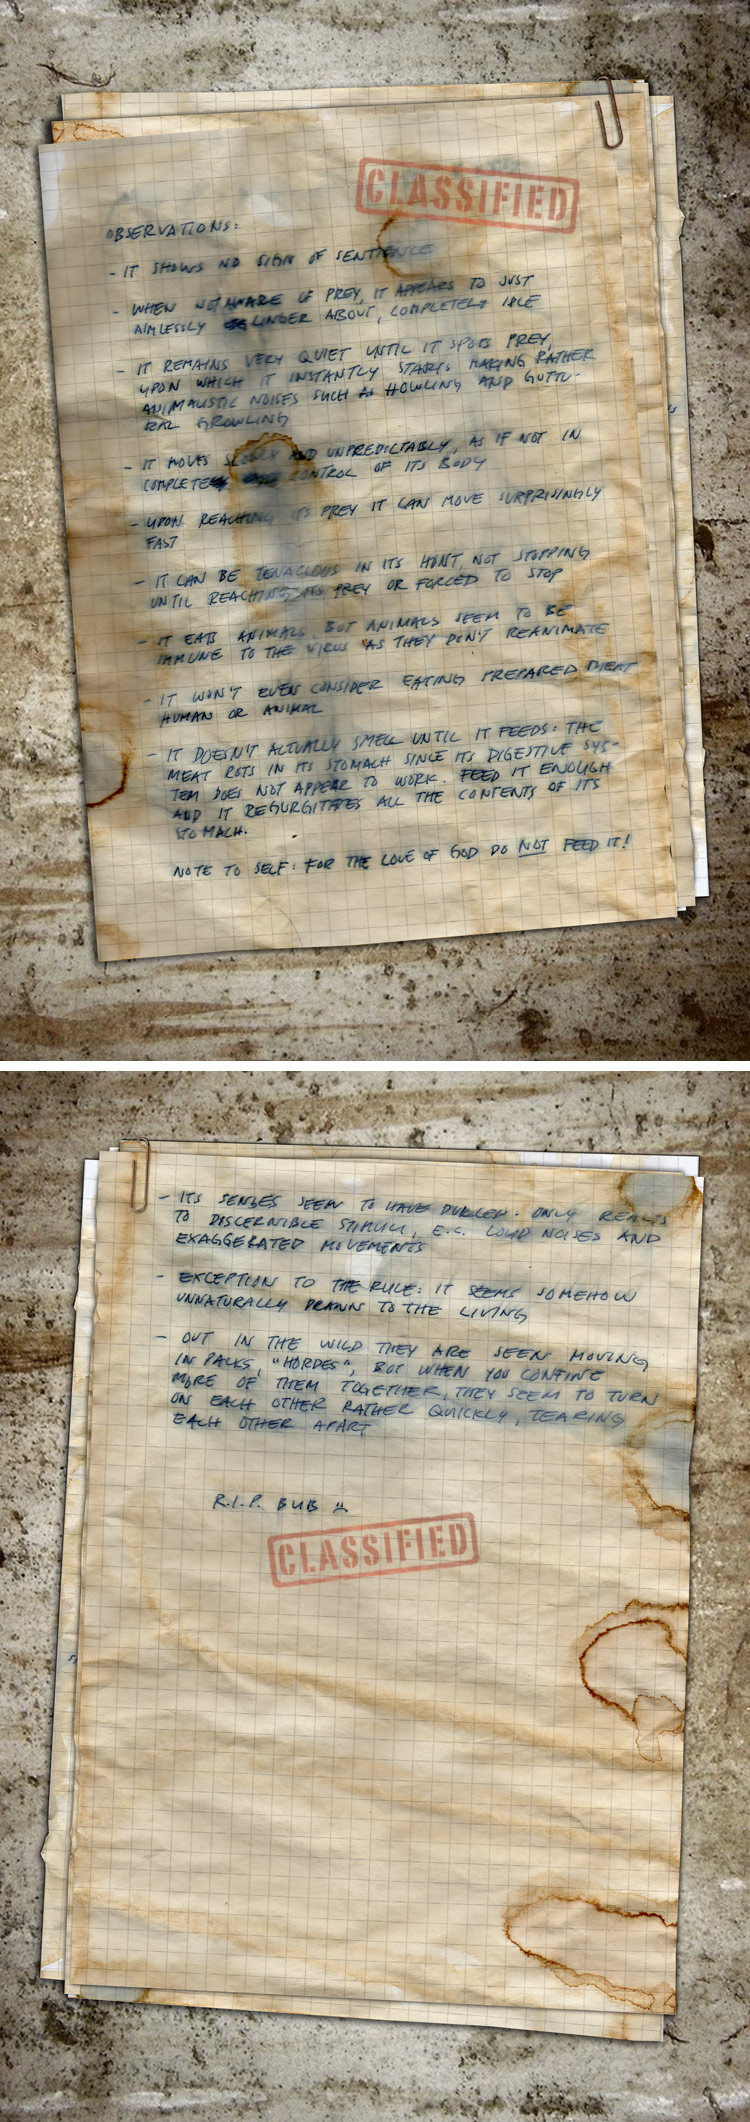 CLASSIFIED
OBSERVATIONS:
- IT SHOWS NO SIGN OF SENTIENCE
- WHEN NOT AWARE OF PREY, IT APPEARS TO JUST
AIMLESSLY LINGER ABOUT, COMPLETELY IDLE
- IT REMAINS VERY QUIET UNTIL IT SPOTS PREY,
UPON WHICH IT INSTANTLY STARTS MAKING RATHER
ANIMALISTIC NOISES SUCH AS HOWLING AND GUTTU-
RAL GROWLING
- IT MOVES SLOWLY AND UNPREDICTABLY, AS IF NOT IN
COMPLETE CONTROL OF ITS BODY
- UPON REACHING ITS PREY IT CAN MOVE SURPRISINGLY
FAST
- IT CAN BE TENACIOUS IN ITS HUNT, NOT STOPPING
UNTIL REACHING ITS PREY OR FORCED TO STOP
- IT EATS ANIMALS, BUT ANIMALS SEEM TO BE
IMMUNE TO THE VIRUS AS THEY DON'T REANIMATE
- IT WON'T EVEN CONSIDER EATING PREPARED MEAT
HUMAN OR ANIMAL
- IT DOESN'T ACTUALLY SMELL UNTIL IT FEEDS: THE
MEAT ROTS IN ITS STOMACH SINCE ITS DIGESTIVE SYS-
TEM DOES NOT APPEAR TO WORK. FEED IT ENOUGH
AND IT REGURGITATES ALL THE CONTENTS OF ITS
STOMACH.
NOTE TO SELF: FOR THE LOVE OF GOD DO NOT FEED IT!
- ITS SENSES SEEM TO HAVE DULLED. ONLY REACTS
TO DISCERNIBLE STIMULI, E.G. LOUD NOISES AND
EXAGGERATED MOVEMENTS
- EXCEPTION TO THE RULE: IT SEEMS SOMEHOW
UNNATURALLY DRAWN TO THE LIVING
- OUT IN THE WILD THEY ARE SEEN MOVING
IN PACKS, "HORDES", BUT WHEN YOU CONFINE
MORE OF THEM TOGETHER, THEY SEEM TO TURN
ON EACH OTHER RATHER QUICKLY, TEARING
EACH OTHER APART
R.I.P. BUB
CLASSIFIED